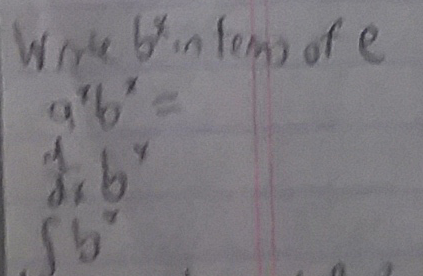 Write b^x in terms of e
a^x b^x =
d/dx b^x
∫ b^x